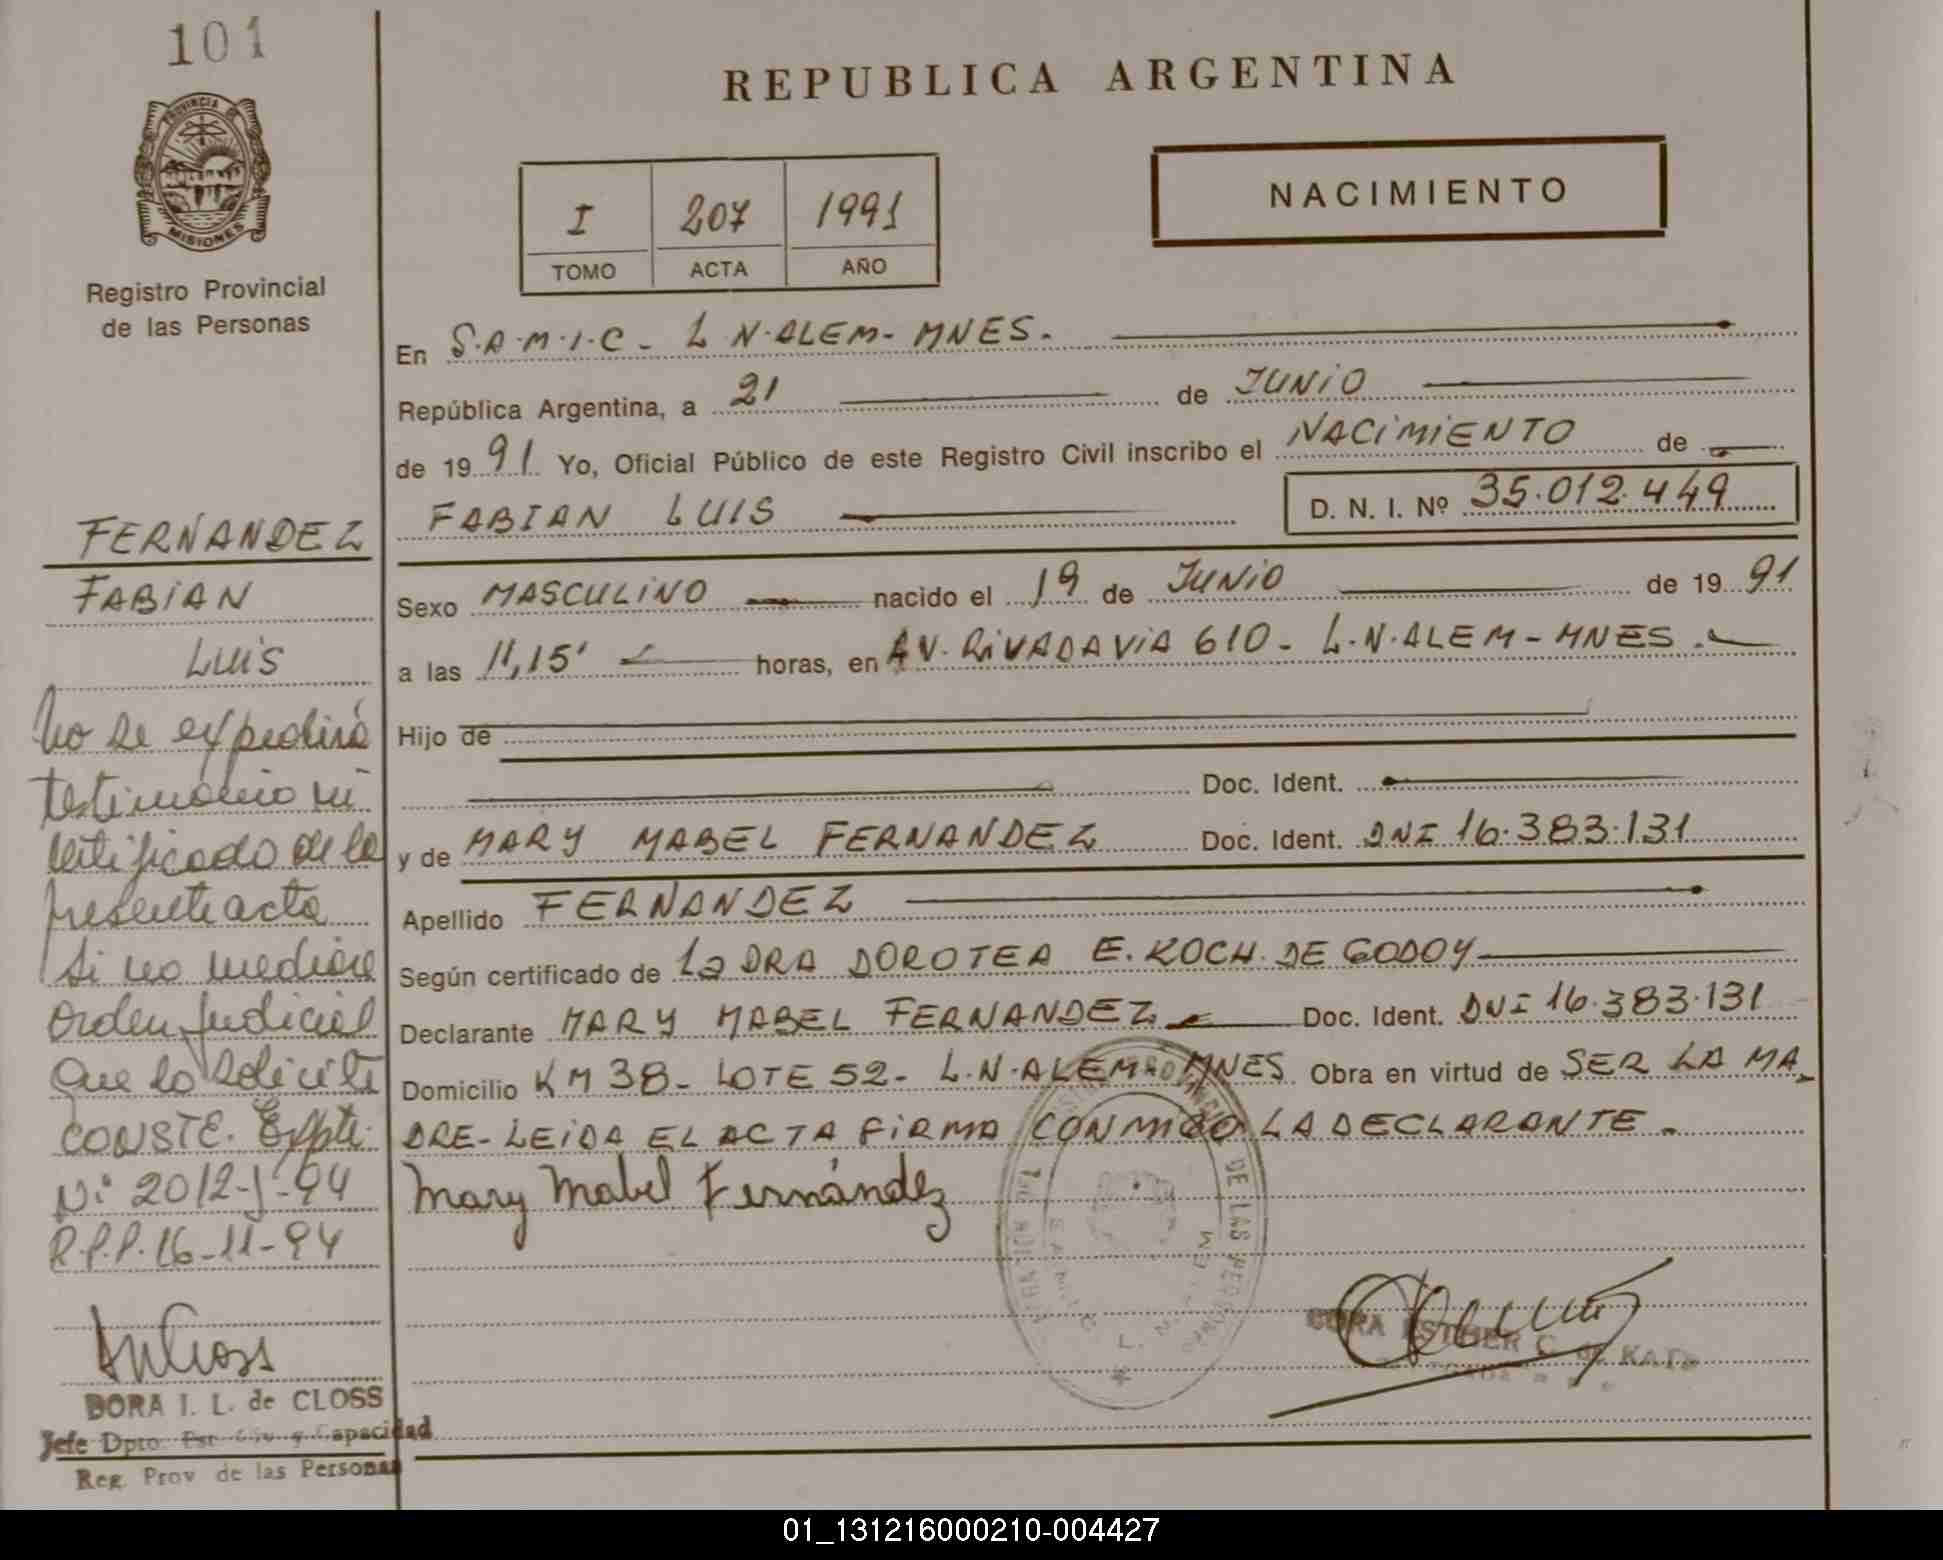 101
PROVINCIA DE
MISIONES
Registro Provincial
de las Personas
REPUBLICA ARGENTINA
NACIMIENTO
I 207 1991
TOMO ACTA AÑO
En S.A.M.I.C - L.N.ALEM - MNES.
República Argentina, a 21 de JUNIO
de 1991 Yo, Oficial Público de este Registro Civil inscribo el NACIMIENTO de
FABIAN LUIS D. N. I. Nº 35.012.449
Sexo MASCULINO nacido el 19 de JUNIO de 1991
a las 11,15' horas, en AV. RIVADAVIA 610 - L.N.ALEM - MNES.
Hijo de
Doc. Ident.
y de MARY MABEL FERNANDEZ Doc. Ident. DNI 16.383.131
Apellido FERNANDEZ
Según certificado de La DRA DOROTEA E. KOCH DE GODOY
Declarante MARY MABEL FERNANDEZ Doc. Ident. DNI 16.383.131
Domicilio KM 38 - LOTE 52 - L.N.ALEM MNES Obra en virtud de SER LA MA-
DRE - LEIDA EL ACTA FIRMA CONMIGO LA DECLARANTE.
Mary Mabel Fernández
FERNANDEZ
FABIAN
LUIS
No se expedirá
testimonio ni
certificado de la
presente acta
si no mediare
orden judicial
que lo solicite
CONSTE. Expte.
Nº 2012-J-94
R.P.P. 16-11-94
DORA I. L. de CLOSS
Jefe Dpto. Est. Civ. y Capacidad
Reg. Prov de las Personas
DE LAS PERSONAS
DORA ESTHER C. de
01_131216000210-004427